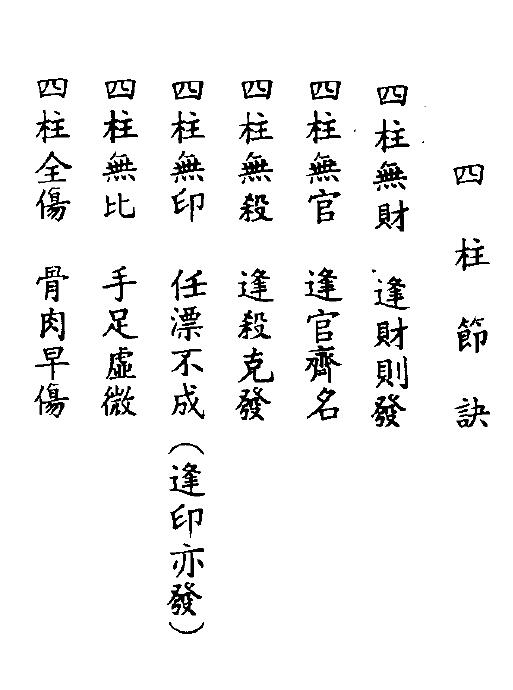 四柱節訣
四柱無財 逢財則發
四柱無官 逢官齊名
四柱無殺 逢殺克發
四柱無印 任漂不成（逢印亦發）
四柱無比 手足虛微
四柱全傷 骨肉早傷